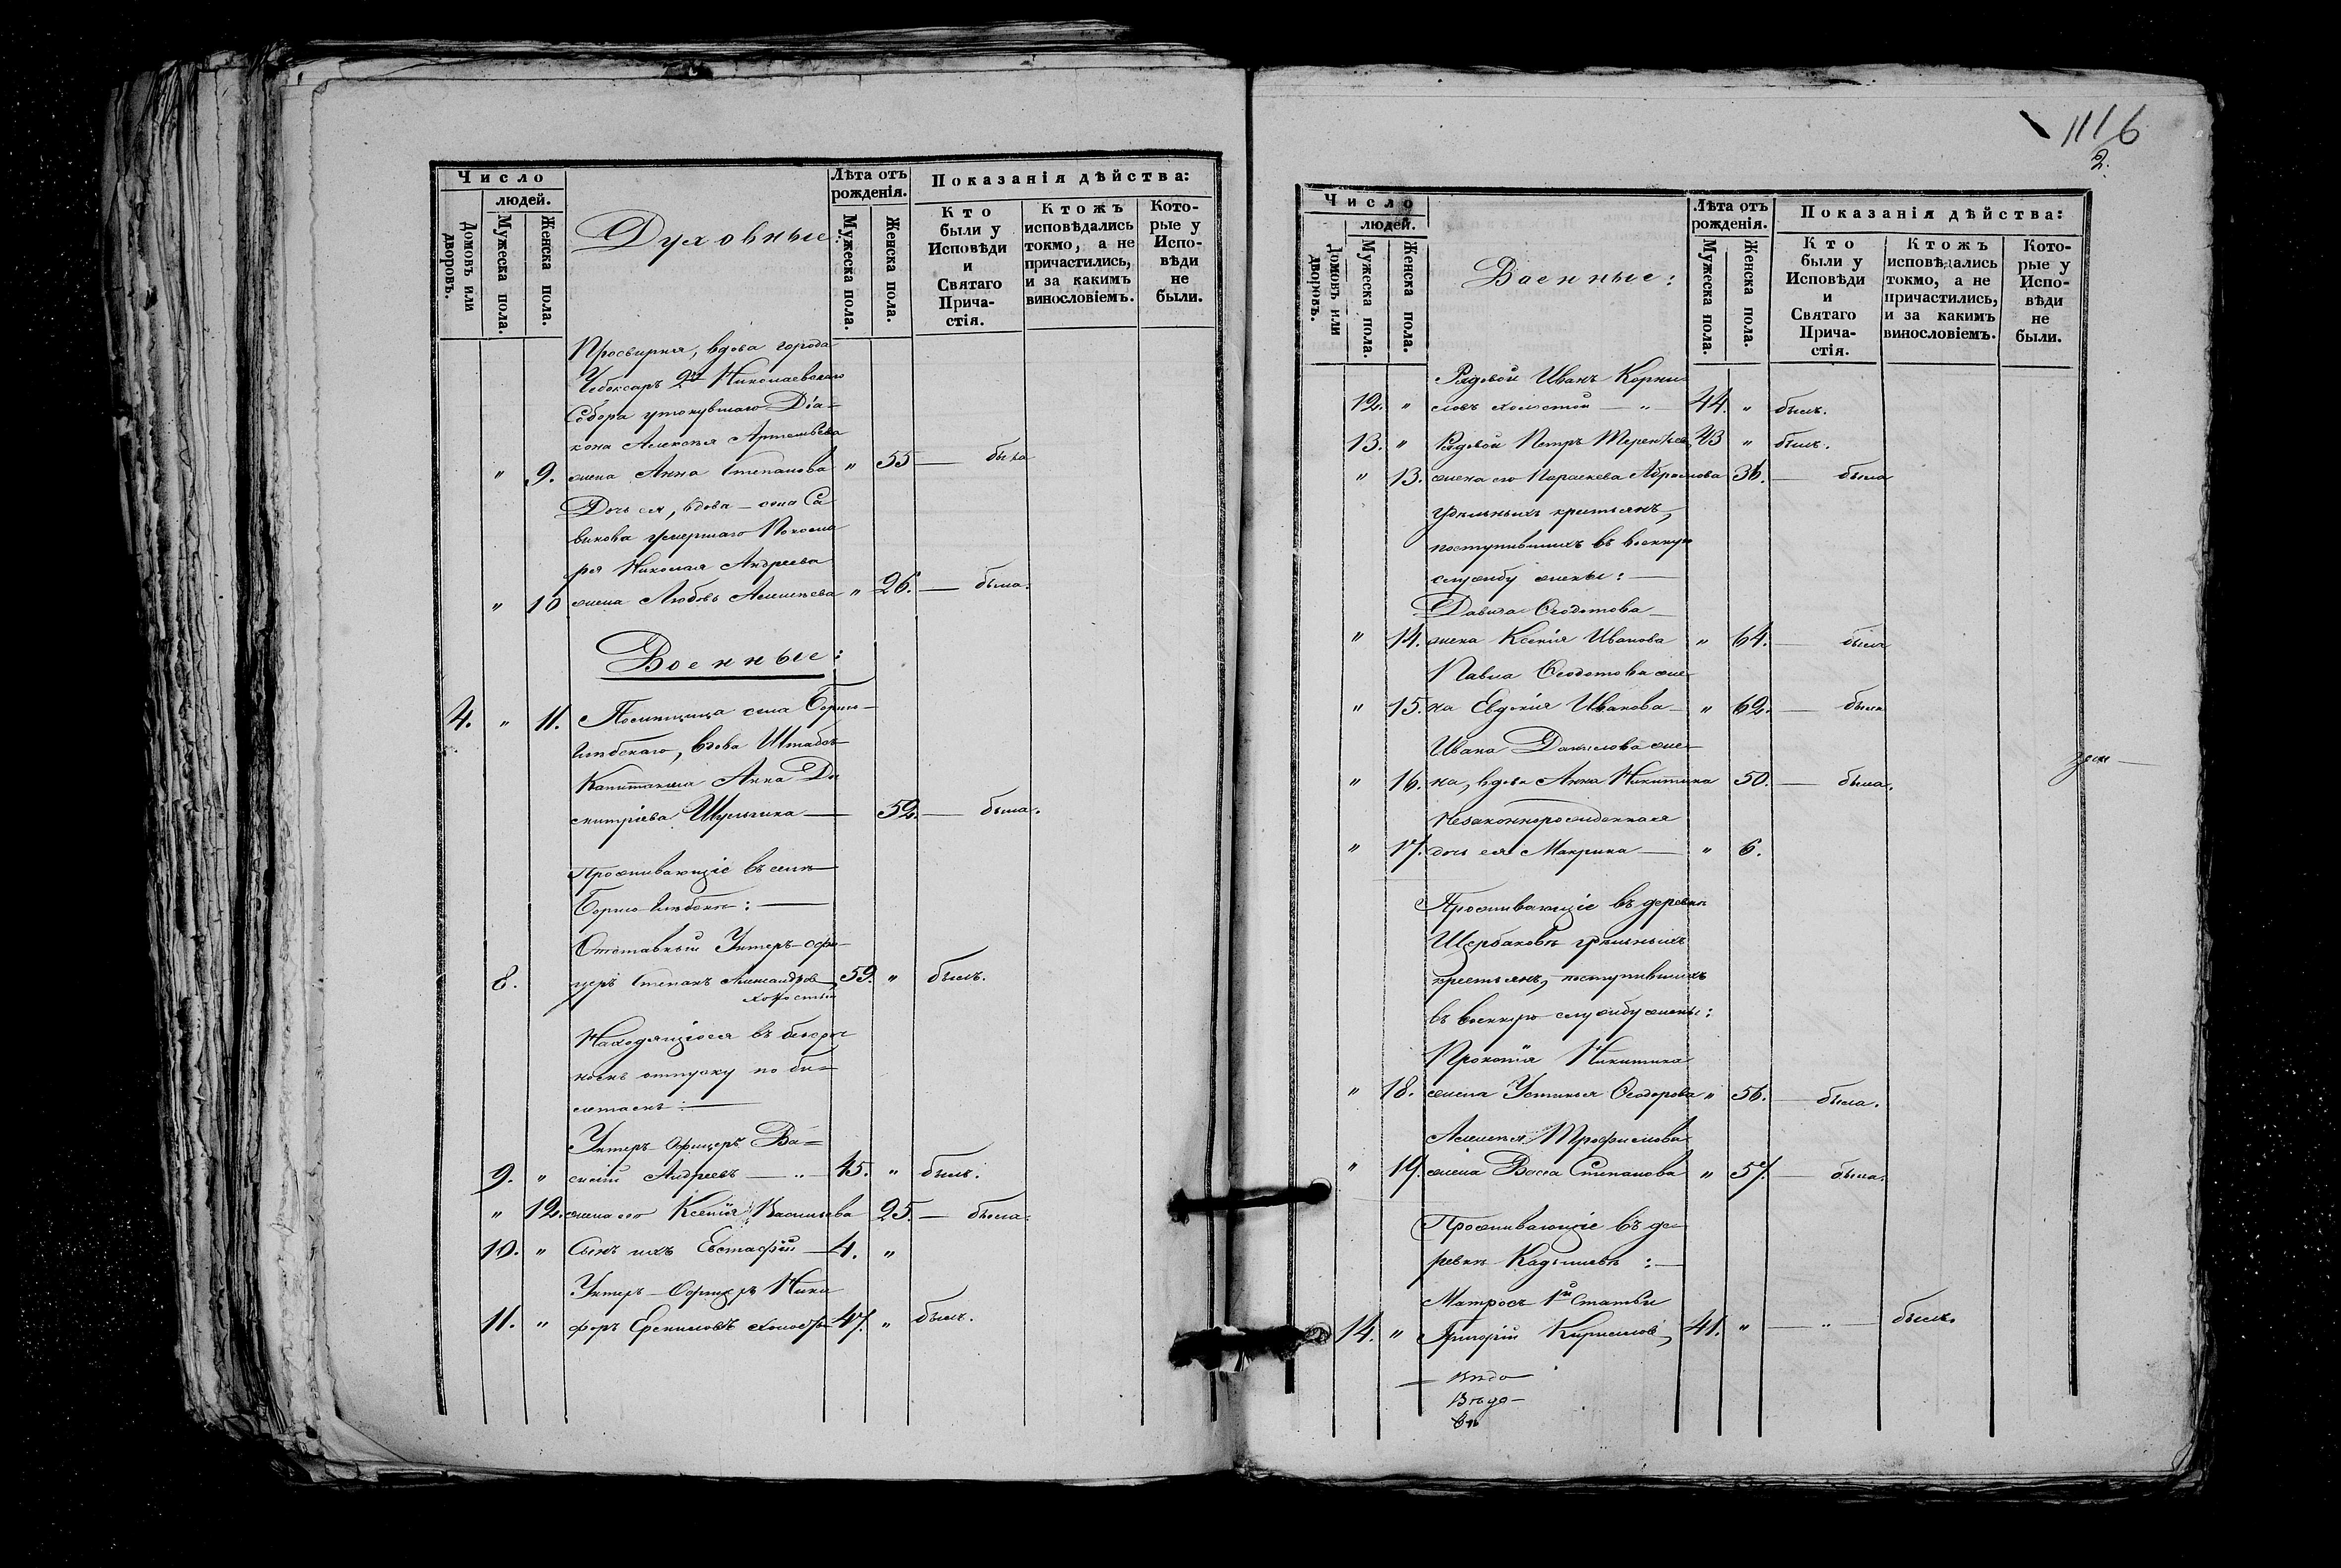 Число
людей.
Домовъ или дворовъ.
Мужеска пола.
Женска пола.
Духовные:
Лѣта отъ рожденія.
Мужеска пола.
Женска пола.
Показанія дѣйства:
Кто были у Исповѣди и Святаго Прича-стія.
Ктожъ исповѣдались токмо, а не причастились, и за какимъ винословіемъ.
Кото-рые у Испо-вѣди не были.
Просвирня, вдова города
Чебоксаръ Николаевскаго
Собора утонувшаго Діа-
кона Алексѣя Артемьева
" 9. жена Анна Степанова " 55 — была
Дочь ея, вдова — села
умершаго Понома
ря Николая Андреева
" 10 жена Любовь Алексѣева " 26. — была.
Военные:
4. " 11. Помѣщица села Борисо-
глѣбскаго, вдова Штабсъ
Капитанша Анна Ди
митріева Шульгина — 52. — была.
Проживающіе въ селѣ
Борисоглѣбскѣ: —
Отставный Унтеръ-офи-
8. церъ Степанъ Александровъ 59. " былъ.
холостый
Находящіеся въ безсроч
номъ отпуску по би-
летамъ: —
Унтеръ-Офицеръ Ва=
9. " силій Андреевъ — " — 45. " былъ.
" 12. жена его Ксенія Васильева 25. — была.
10. " Сынъ ихъ Евстафій — 4. "
Унтеръ-Офицеръ Ники
11. " форъ холостъ 47. " былъ.
1116
2.
Число
людей.
Домовъ или дворовъ.
Мужеска пола.
Женска пола.
Военные:
Лѣта отъ рожденія.
Мужеска пола.
Женска пола.
Показанія дѣйства:
Кто были у Исповѣди и Святаго Прича-стія.
Ктожъ исповѣдались токмо, а не причастились, и за какимъ винословіемъ.
Кото-рые у Испо-вѣди не были.
Рядовой Иванъ Корни-
12. " ловъ холостой — " — 44. " былъ.
13. " Рядовой Петръ Терентьев 43 " былъ.
" 13. жена его Параскева Абрамова 36. — была
Удѣльныхъ крестьянъ,
поступившихъ въ военную
службу жены: —
Давида Ѳеодотова —
" 14. жена Ксенія Иванова " 64. — была
Павла Ѳеодотова же-
" 15. на Евдокія Иванова — " 62. — была
Ивана Данилова же-
" 16. на, вдова Анна Никитина 50. — была.
Незаконнорожденная
" 17. дочь ея Макрина — " 6.
Проживающіе въ деревнѣ
Щербаковѣ удѣльныхъ
крестьянъ, поступившихъ
въ военную службу жены:
Прокопія Никитина
" 18. жена Устинья Ѳеодорова " 56. — была.
Алексѣя Трофимова
" 19. жена Васса Степанова " 57. — была.
Проживающіе въ де-
ревнѣ Кадышевѣ: —
Матросъ 1й Статьи
14. " Григорій Кириловъ, 41. " — " — былъ.